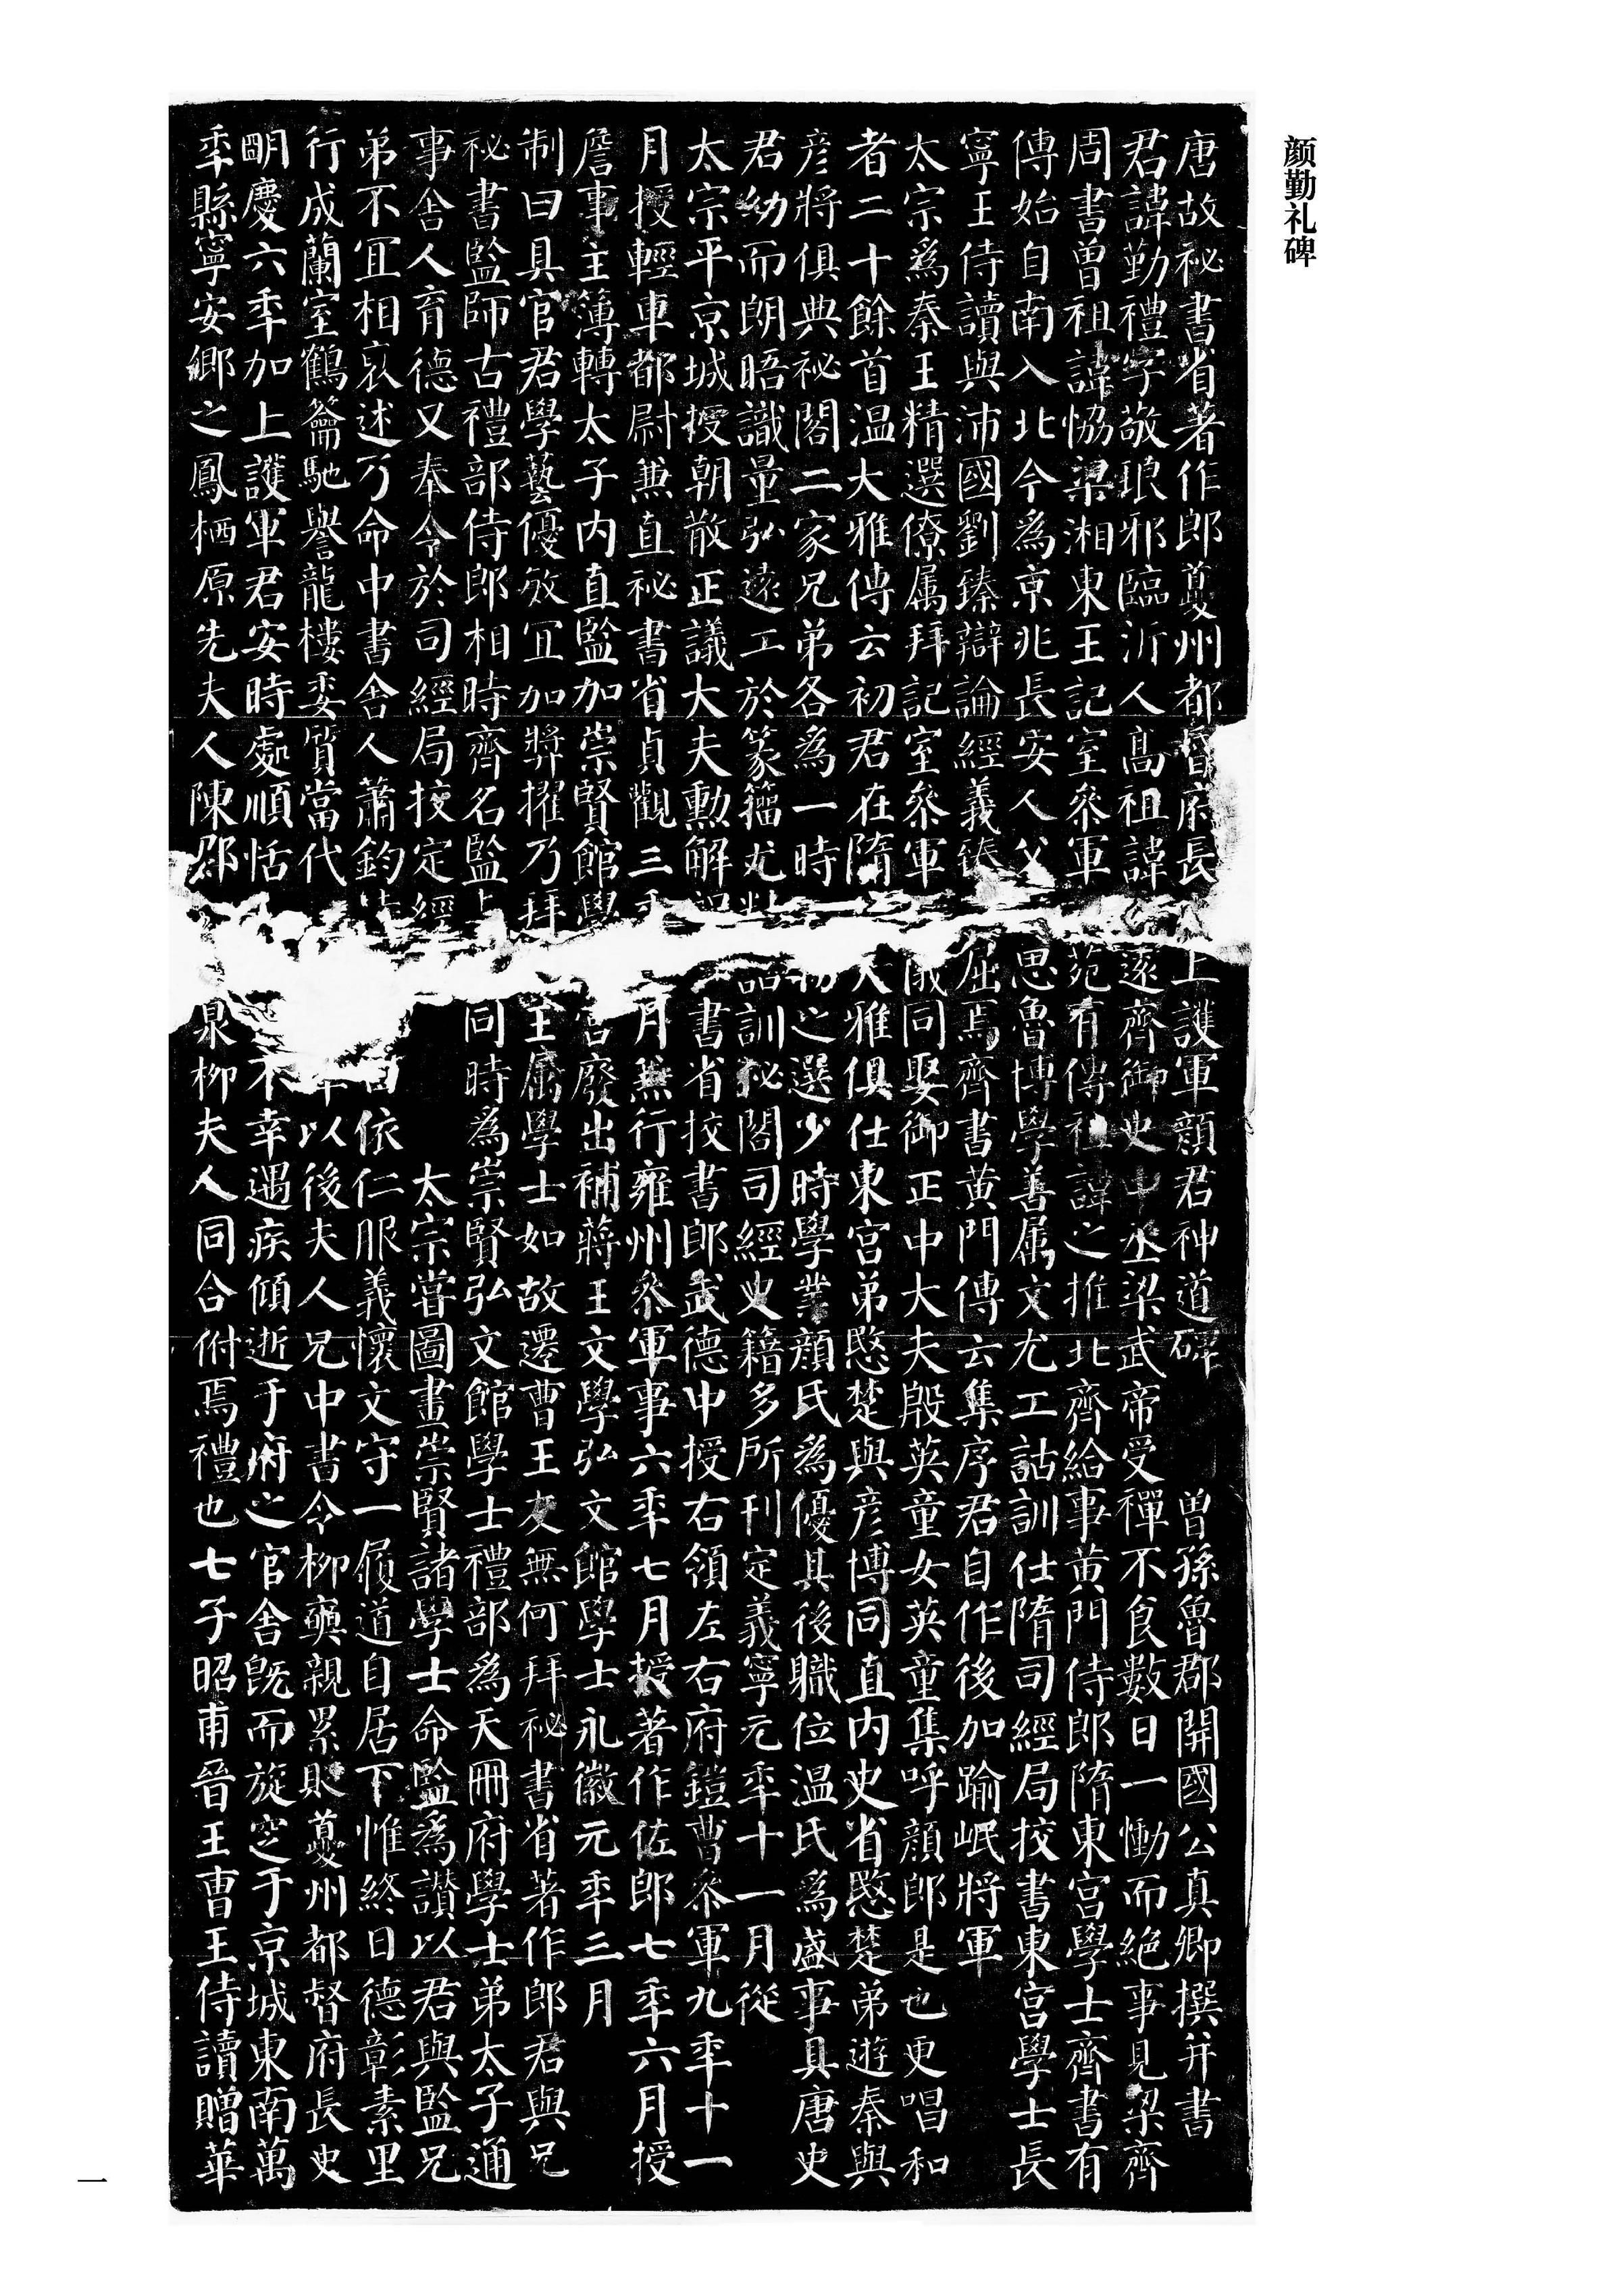 颜勤礼碑
唐故祕書省著作郎夔州都督府長上護軍顏君神道碑 曾孫魯郡開國公真卿撰并書
君諱勤禮字敬琅邪臨沂人高祖諱見遠齊御史中丞梁武帝受禪不食數日一慟而絕事見梁齊
周書曾祖諱協梁湘東王記室參軍苑有傳祖諱之推北齊給事黃門侍郎隋東宮學士齊書有
傳始自南入北今為京兆長安人父思魯博學善屬文尤工詁訓仕隋司經局挍書東宮學士長
寧王侍讀與沛國劉臻辯論經義臻屈焉齊書黃門傳云集序君自作後加踰岷將軍
太宗為秦王精選僚屬拜記室參軍儀同娶御正中大夫殷英童女英童集呼顏郎是也更唱和
者二十餘首溫大雅傳云初君在隋大雅俱仕東宮弟愍楚與彥博同直內史省愍楚弟遊秦與
彥將俱典祕閣二家兄弟各為一時物之選少時學業顏氏為優其後職位溫氏為盛事具唐史
君幼而朗晤識量弘遠工於篆籀尤詁訓祕閣司經史籍多所刊定義寧元年十一月從
太宗平京城授朝散正議大夫勳解書省挍書郎武德中授右領左右府鎧曹參軍九年十一
月授輕車都尉兼直祕書省貞觀三年月兼行雍州參軍事六年七月授著作佐郎七年六月授
詹事主簿轉太子內直監加崇賢館學宮廢出補蔣王文學弘文館學士永徽元年三月
制曰具官君學藝優敏宜加獎擢乃拜王屬學士如故遷曹王友無何拜祕書省著作郎君與兄
祕書監師古禮部侍郎相時齊名監同時為崇賢弘文館學士禮部為天冊府學士弟太子通
事舍人育德又奉令於司經局挍定經 太宗嘗圖畫崇賢諸學士命監為讚以君與監兄
弟不宜相褒述乃命中書舍人蕭鈞依仁服義懷文守一履道自居下惟終日德彰素里
行成蘭室鶴籥馳譽龍樓委質當代以後夫人兄中書令柳奭親累貶夔州都督府長史
明慶六年加上護軍君安時處順恬不幸遇疾傾逝于府之官舍既而旋窆于京城東南萬
年縣寧安鄉之鳳栖原先夫人陳郡泉柳夫人同合祔焉禮也七子昭甫晉王曹王侍讀贈華
一